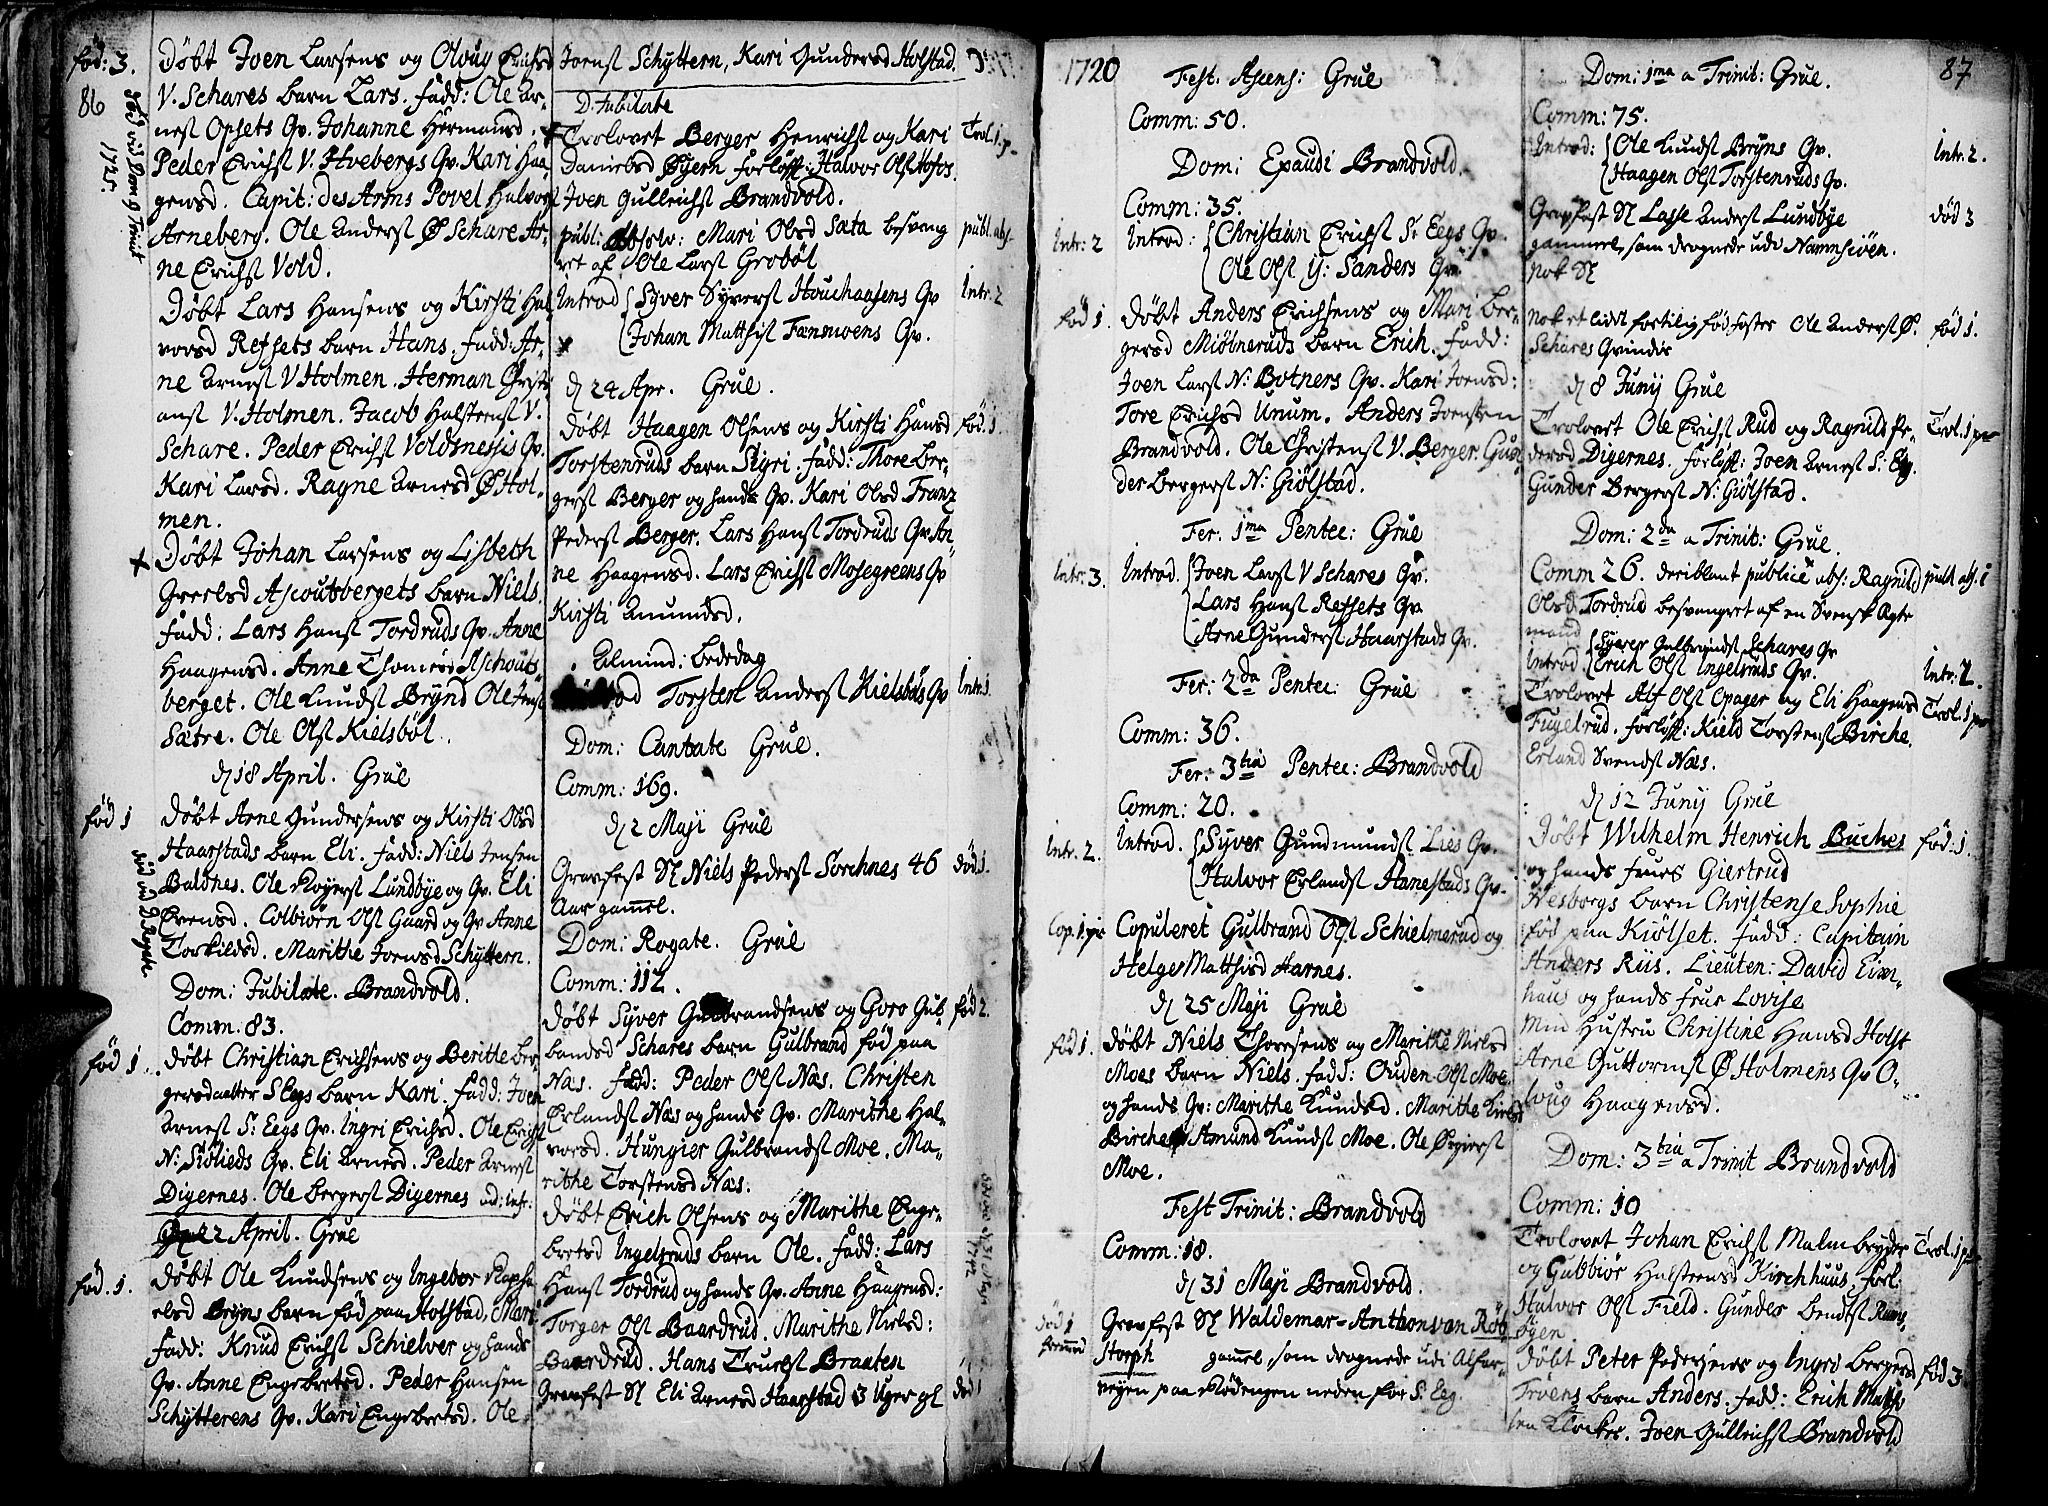 86
fød: 3.
Døbt Joen Larsens og Oloug Erichsd
V. Schares barn Lars. fadd: Ole Ar-
nesſ Opsets Qv. Johanne Hermansd.
Peder Erichsſ V. Hvebergs Qv. Kari Haa-
gensd. Capit: des Arms Povel Halvorsſ
Arneberg. Ole Andersſ Ø Schare Ar-
ne Erichsſ Vold.
død vid Dom 9 Trinit
1725.
Døbt Lars Hansens og Kirsti Hal-
vorsd Refsets barn Hans. fadd: Ar-
ne Arnesſ V Holmen. Herman Christi-
ansſ V. Holmen. Jacob Halsteensſ V.
Schare. Peder Erichsſ Voldsnessis Qv.
Kari Larsd. Ragne Arnesd Ø Hol-
men.
+ Døbt Johan Larsens og Lisbeth
Greelsd Ascoutsbergets barn Niels.
fadd: Lars Hansſ Tordruds Qv. Anne
Haagensd. Anne Thomesd Aschouts-
berget. Ole Knudsſ Brynd Ole Jensſ
Sætre. Ole Olsſ Kielsbøl.
d 18 April. Grue
fød 1
Døbt Arne Gundersens og Kirsti Olsd
Haarstads barn Eli. fadd: Niels Jensen
Baldnes. Ole Royersſ Lundbye og Qv. Eli
Evensd. Colbiørn Olsſ Gaard og Qv Anne
Torkildsd. Marithe Joensd Schyttern.
død vid D. Rogate
Dom: Jubilate. Brandvold.
Comm: 83.
fød 1
Døbt Christian Erichsens og Beritte Ber-
gersdaatter S Eegs barn Kari. fadd: Joen
Arnesſ S: Eegs Qv. Ingri Erichsd. Ole Erichsſ
N: Siølieds Qv. Eli Arnesd. Peder Arnesſ
Digernes. Ole Bergersſ Digernes ud: intr.
d 22 April. Grue
fød. 1.
Døbt Ole Knudsens og Ingebor Rapha-
elsd Bryns barn fød paa Holstad, Mari
fadd: Knud Erichsſ Schielver og hands
Qv. Anne Engebretsd. Peder Hansen
Schytterens Qv. Kari Engebretsd. Ole
Joensſ Schyttern, Kari Gundersd Holstad.
D. Jubilate
Trolovet Berger Henrichsſ og Kari
Trol. 1. p.
Danielsd Øyern forløfft: Halvor Olsſ Hofos.
Joen Gullrichsſ Brandvold.
publ: Absolv: Mari Olsd Sæta besvang
publ. abs.
ret af Ole Larsſ Grobøl
Introd Syver Syversſ Houchaasens Qv
Intr. 2
Johan Matthisſ Fænmoens Qv.
d 24 Apr. Grue.
Døbt Haagen Olsens og Kirsti Hansd
fød. 1.
Torstenruds barn Siyri. fadd: Thore Ber-
gersſ Berger og hands Qv. Kari Olsd Franz
Pedersſ Berger. Lars Hansſ Tordruds Qv An-
ne Haagensd. Lars Erichsſ Mosegreens Qv
Kirsti Amundsd.
Almind: bededag
Torsten Andersſ Kielsbøls Qv
Intr. 1.
Dom: Cantate Grue.
Comm: 169.
d 2 Maji Grue
Gravfest Sl Niels Pedersſ Sorchnes 46
død 1.
Aar gaml.
Dom: Rogate. Grue
Comm: 112.
Døbt Syver Gulbrandsens og Goro Gul-
fød 2.
brandsd Schares barn Gulbrand fød paa
Næs. fadd: Peder Olsſ Næs. Christen
Erlandsſ Næs og hands Qv. Marithe Hal-
vorsd. Hungier Gulbrandsſ Moe. Ma-
rithe Torstensd Næs.
Døbt Erich Olsens og Marithe Enge-
bretsd Ingelsruds barn Ole. fadd: Lars
Hansſ Tordrud og hands Qv. Anne Haagensd:
Torger Olsſ Baardrud. Marithe Nielsd:
Baardrud. Hans Truelsſ Braaten
Gravfest Sl Eli Arnesd Haarstad 3 Uger gl
død 1
1720
Fest. Ascens: Grue
Comm: 50.
Dom: Exaudi Brandvold.
Comm: 35.
Intr: 2
Introd: Christian Erichsſ S: Eegs Qv.
Ole Olsſ Y: Sanders Qv.
fød 1.
Døbt Anders Erichsens og Mari Ber-
gersd Miølneruds barn Erich. fadd:
Joen Larsſ N: Botners Qv. Kari Joensd:
Tore Erichsd Unum. Anders Joensen
Brandvold. Ole Christensſ V. Berger. Gun-
der Bergersſ N: Giølstad.
Fer: 1ma Pentec: Grue
Intr: 3.
Introd. Joen Larsſ V Schares Qv.
Lars Hansſ Refsets Qv.
Arne Gundersſ Haarstads Qv.
Fer: 2da Pentec: Grue
Comm: 36.
Fer: 3tia Pentec: Brandvold
Comm: 20.
Intr. 2.
Introd. Syver Gundmundsſ Lies Qv.
Halvor Erlandsſ Hanestads Qv.
Cop. 1 pr
Copuleret Gulbrand Olsſ Schielmerud og
Helge Matthisd Harnes.
d 25 Maji Grue
fød 1.
Døbt Niels Thoresens og Marithe Nielsd
Moes barn Niels. fadd: Ouden Olsſ Moe
og hands Qv: Marithe Knudsd. Marithe Kieldsd
Birche Amund Knudsſ Moe. Ole Øvjersſ
Moe.
Fest Trinit: Brandvold
Comm: 18.
d 31 Maji Brandvold.
død 1
fremmed
Gravfest Sl Waldemar-Anthon von Røb-
Storph gammel, som drognede udi Alfar-
vejen paa Rødengen neden for S: Eeg.
87
Dom: 1ma a Trinit: Grue.
Comm: 75.
Introd: Ole Knudsſ Bryns Qv.
Intr. 2.
Haagen Olsſ Torstenruds Qv.
Gravfest Sl Lasse Andersſ Lundbye
død 3
gammel, som drognede udi Namnsiøen.
Nok Sl
Nok et lidet fortilig fød foster Ole Andersſ Ø.
fød 1.
Schares Qvindis
d 8 Junij Grue
Trolovet Ole Erichsſ Rud og Ragnild Pe-
Trol. 1 par
dersd Digernes. forløfft: Joen Arnesſ S: Eeg.
Gunder Bergersſ N: Giølstad.
Dom: 2da a Trinit: Grue.
Comm 26. deriblant publice abs: Ragnild
publ abs. 1
Olsd Tordrud besvangret af en Svensk Ægte
mand
Introd. Syver Gulbrandsſ Schares Qv
Erich Olsſ Ingelsruds Qv.
Intr: 2.
Trolovet Alf Olsſ Opager og Eli Haagensd
Trol. 1 par
Fugelrud. forløfft: Kield Torstensſ Birche.
Erland Svendsſ Næs.
d 12 Junij Grue
Døbt Wilhelm Henrich Buches
fød. 1.
og hands frues Giertrud
Nesborgs barn Christense Sophie
fød paa Kiølset. fadd: Capitain
Anders Riis. Lieuten: David Eim-
haus og hands frue Lovise
Min Hustru Christine Hansd Holst
Arne Guttormsſ Ø Holmens Qv O-
loug Haagensd.
Dom: 3tia a Trinit Brandvold
Comm: 10
Trolovet Johan Erichsſ Malmbryder
Trol. 1 par
og Gubbiør Halsteensd Kirchhuus, forl.
Halvor Olsſ Field. Gunder Bendtsſ Rams-
øyen
Døbt Peter Pedersens og Ingri Bergersd
fød 3
Troens barn Anders. fadd: Erich Matths
sen Klocker. Joen Gullrichsſ Brandvold